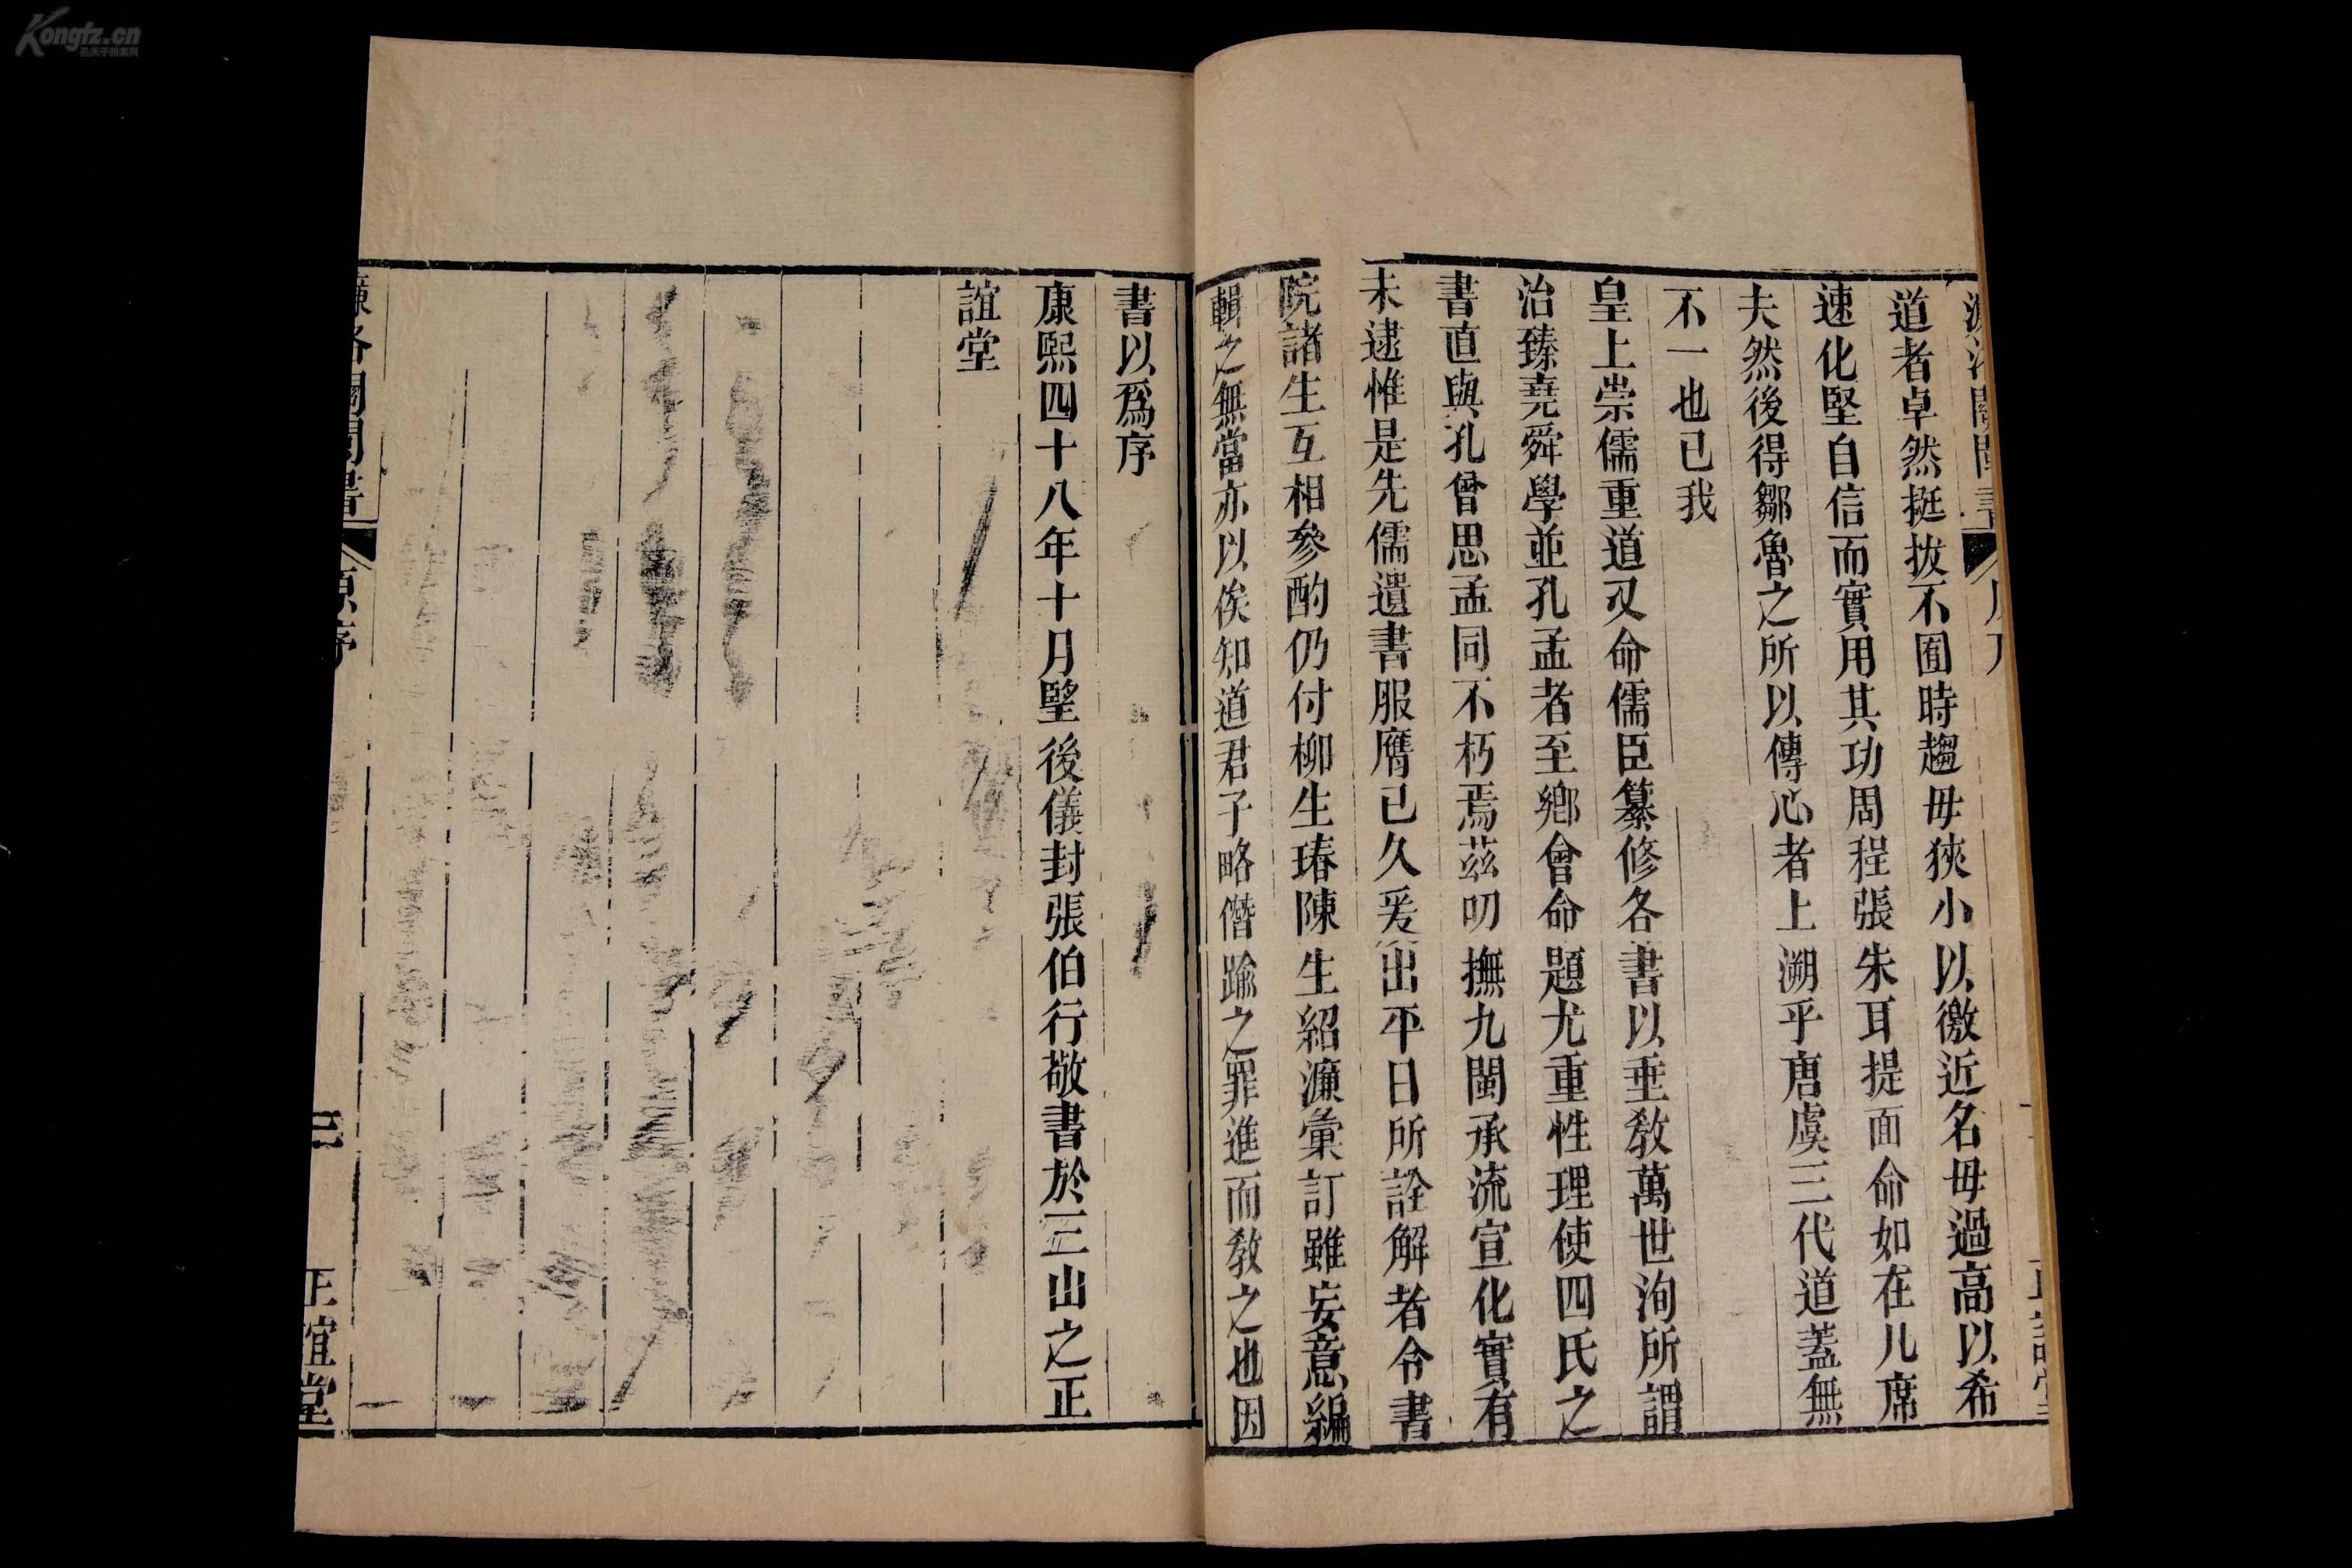 道者卓然挺拔不囿時趨毋狹小以徼近名毋過高以希
速化堅自信而實用其功周程張朱耳提面命如在几席
夫然後得鄒魯之所以傳心者上溯乎唐虞三代道蓋無
不一也已我
皇上崇儒重道又命儒臣纂修各書以垂敎萬世洵所謂
治臻堯舜學並孔孟者至鄉會命題尤重性理使四氏之
書直與孔曾思孟同不朽焉茲叨撫九閩承流宣化實有
未逮惟是先儒遺書服膺已久爰出平日所詮解者令書
院諸生互相參酌仍付柳生瑃陳生紹濂彙訂雖妄意編
輯之無當亦以俟知道君子略僭踰之罪進而敎之也因
書以爲序
康熙四十八年十月朢後儀封張伯行敬書於三山之正
誼堂
濂洛關閩書
原序
三
正誼堂
Kongfz.cn
孔夫子拍卖网